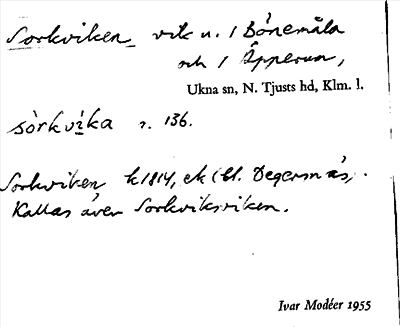 Sorkviken vik u. / Bönemåla
och / Äpperum,
Ukna sn, N. Tjusts hd, Klm. l.
sòrkvi̇ka s. 136.
Sorkviken k 1814, ek (bl. Degersnäs).
Kallas även Sorkviksviken.
Ivar Modéer 1955